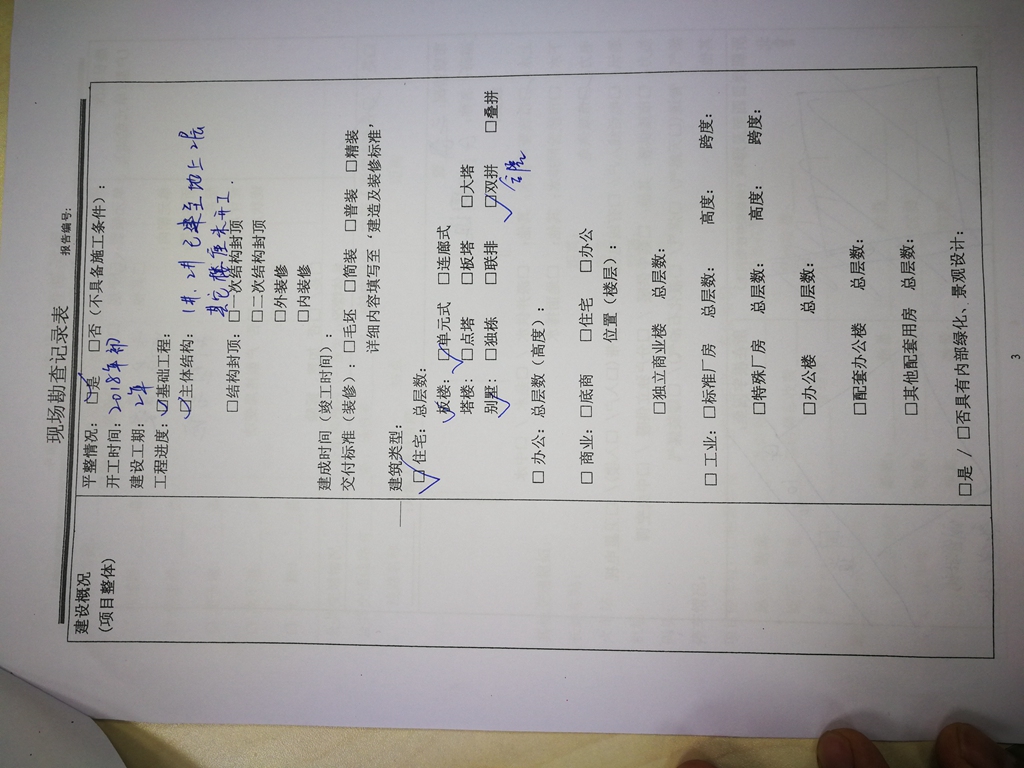 现场勘查记录表
报告编号:
建设概况
(项目整体)
平整情况: ☑是 □否(不具备施工条件):
开工时间: 2018年初
建设工期: 2年
工程进度: ☑基础工程:
☑主体结构: 1#、2#已建至地上2层
其它楼座未开工.
□结构封顶: □一次结构封顶
□二次结构封顶
□外装修
□内装修
建成时间(竣工时间):
交付标准(装修): □毛坯 □简装 □普装 □精装
详细内容填写至‘建造及装修标准’
建筑类型:
☑住宅: 总层数:
板楼: ☑单元式 □连廊式
塔楼: □点塔 □板塔 □大塔
别墅: □独栋 □联排 ☑双拼 □叠拼
□办公: 总层数(高度):
□商业: □底商 □住宅 □办公
位置(楼层):
□独立商业楼 总层数:
□工业: □标准厂房 总层数: 高度: 跨度:
□特殊厂房 总层数: 高度: 跨度:
□办公楼 总层数:
□配套办公楼 总层数:
□其他配套用房 总层数:
□是 / □否具有内部绿化、景观设计:
3